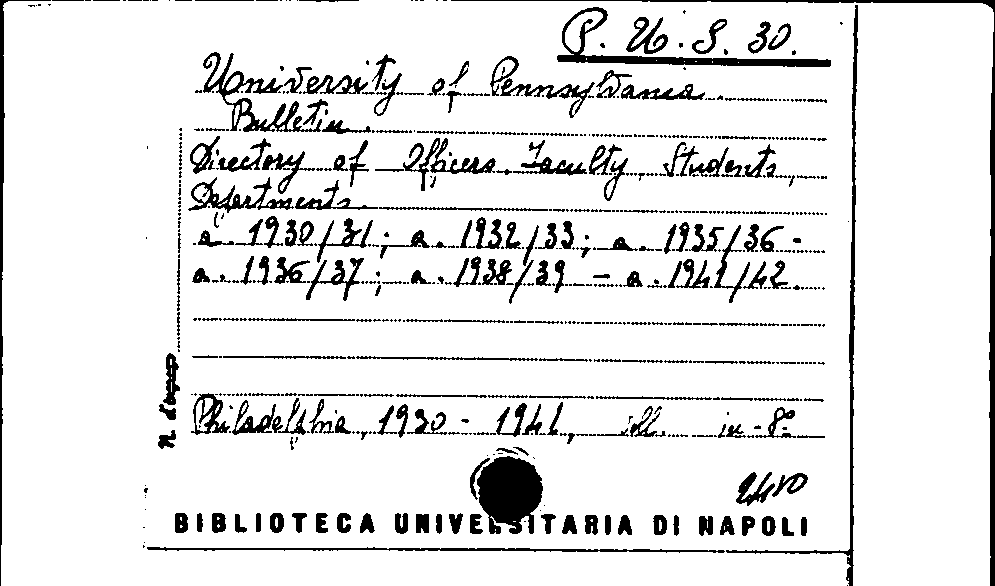 P. U. S. 30.
University of Pennsylvania.
Bulletin.
Directory of Officers. Faculty, Students,
Departments.
a. 1930/31; a. 1932/33; a. 1935/36 -
a. 1936/37; a. 1938/39 - a. 1941/42.
Philadelphia, 1930 - 1941, ill. in-8º
BIBLIOTECA UNIVERSITARIA DI NAPOLI
N.